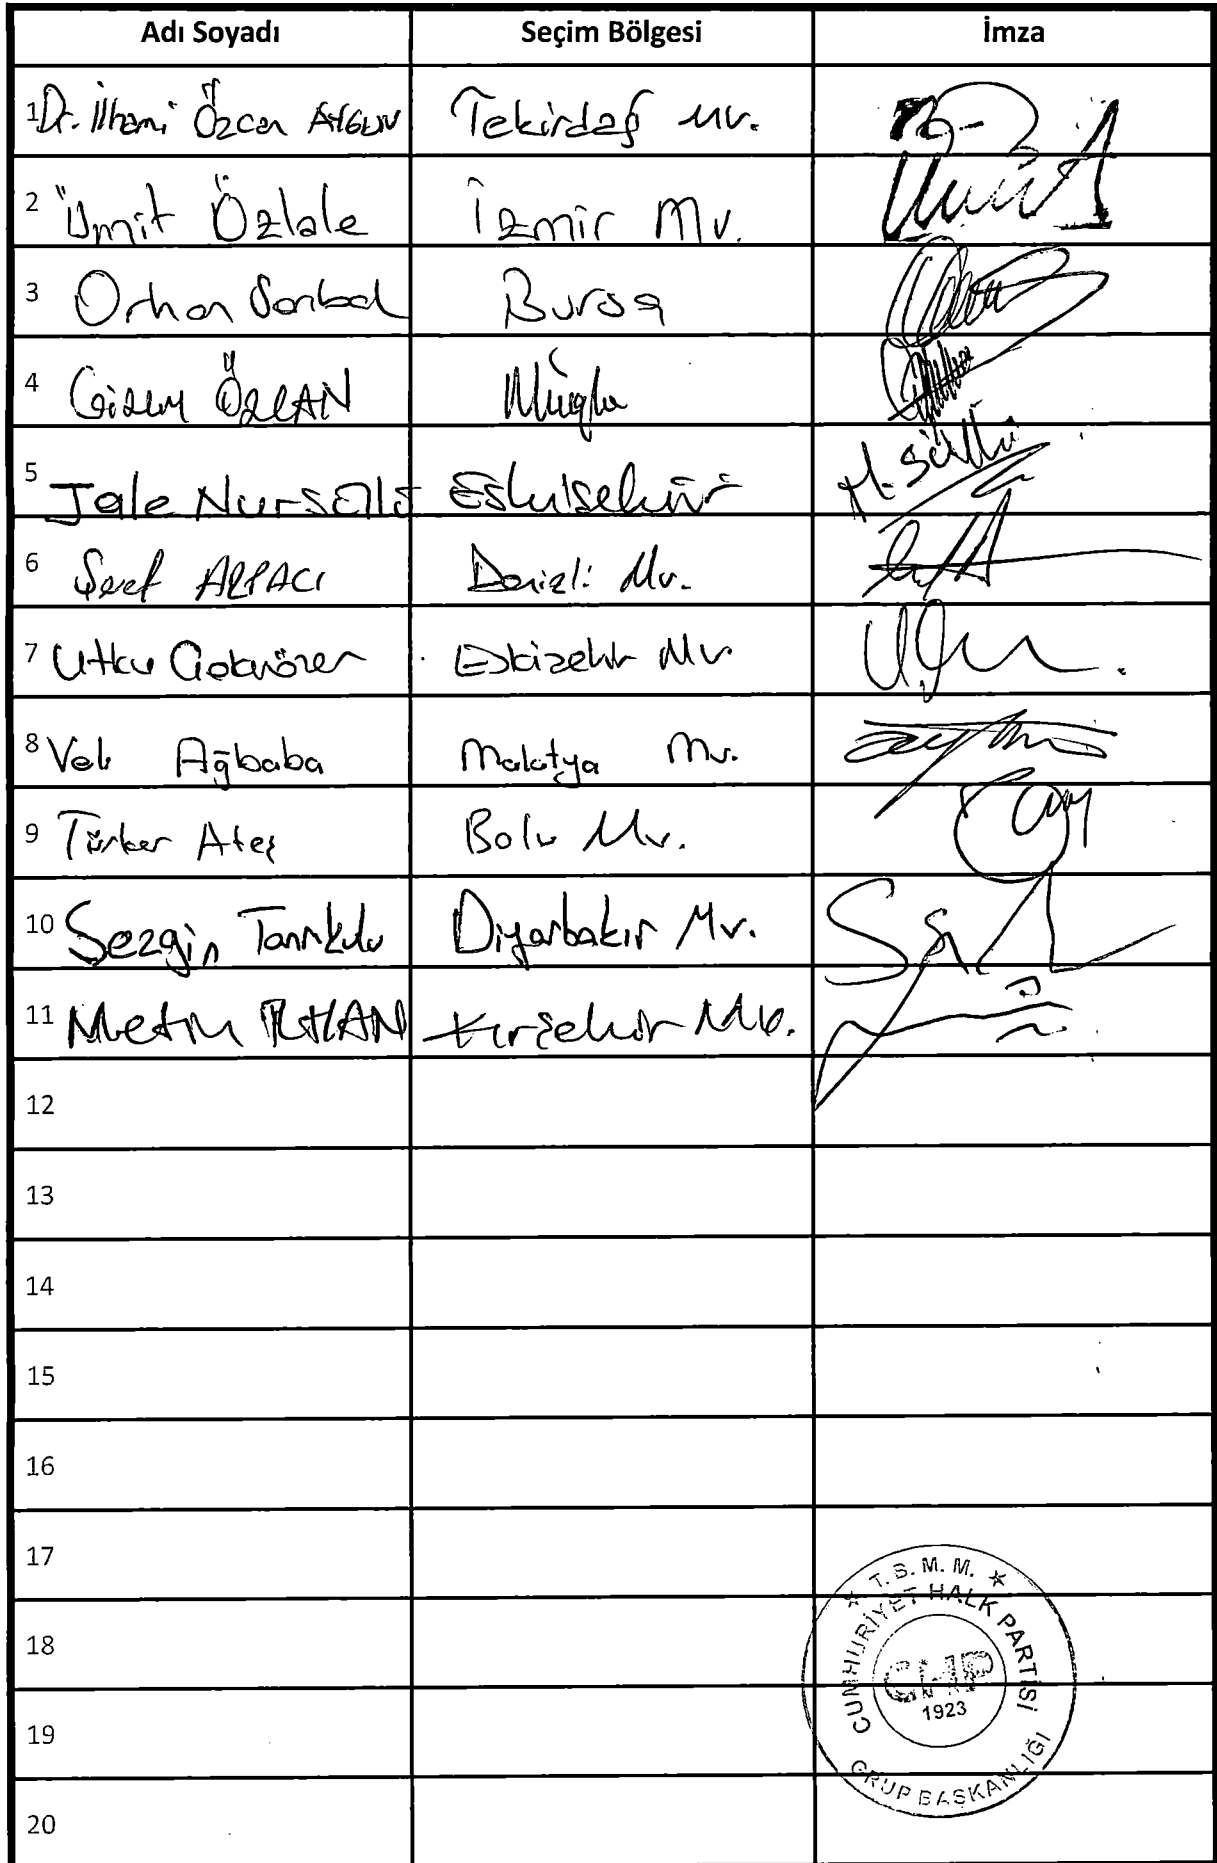 Adı Soyadı Seçim Bölgesi İmza
1 Dr. İlhami Özcan AYGUN Tekirdağ Mv.
2 Ümit Özlale İzmir Mv.
3 Orhan Sarıbal Bursa
4 Gizem ÖZCAN Muğla
5 Jale Nur Süllü Eskişehir M. Süllü
6 Şeref ARPACI Denizli Mv.
7 Utku Çakırözer Eskişehir Mv.
8 Veli Ağbaba Malatya Mv.
9 Türker Ateş Bolu Mv.
10 Sezgin Tanrıkulu Diyarbakır Mv.
11 Metin İLHAN Kırşehir Mv.
12
13
14
15
16
17
18
19
20
T.B.M.M.
CUMHURİYET HALK PARTİSİ
CHP
1923
GRUP BAŞKANLIĞI